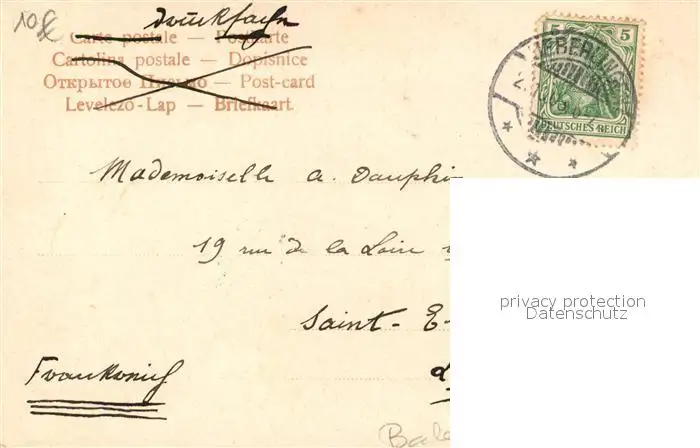 10€
Drucksache
Carte postale — Postkarte
Cartolina postale — Dopisnice
Открытое Письмо — Post-card
Levelező-Lap — Briefkaart
5 5
DEUTSCHES REICH
Mademoiselle a. Dauphin
19 rue de la Loire
Saint-E
Frankreich
privacy protection
Datenschutz